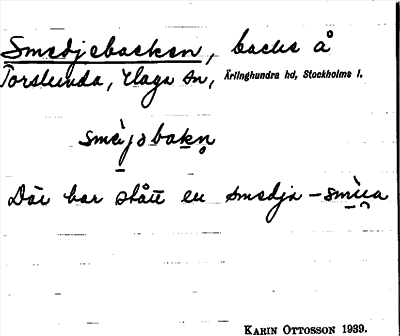 Smedjebacken, backe å
Torslunda, Haga sn, Ärlinghundra hd, Stockholms l.
smèjobakn̥
Där har stått en smedja –
KARIN OTTOSSON 1939.